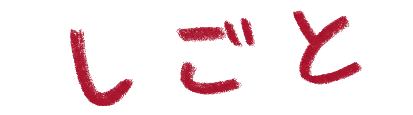 しごと